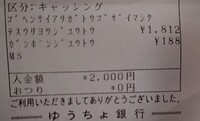 区分:キャッシング
ｺﾞﾍﾝｻｲｱﾘｶﾞﾄｳｺﾞｻﾞｲﾏｼﾀ
ﾃｽｳﾘﾖｳｼﾞﾕｳﾄｳ ¥1,812
ｶﾞﾝﾎﾟﾝｼﾞﾕｳﾄｳ ¥188
MS
入金額 *2,000円
おつり *0円
ご利用いただきましてありがとうございました。
ゆうちょ銀行